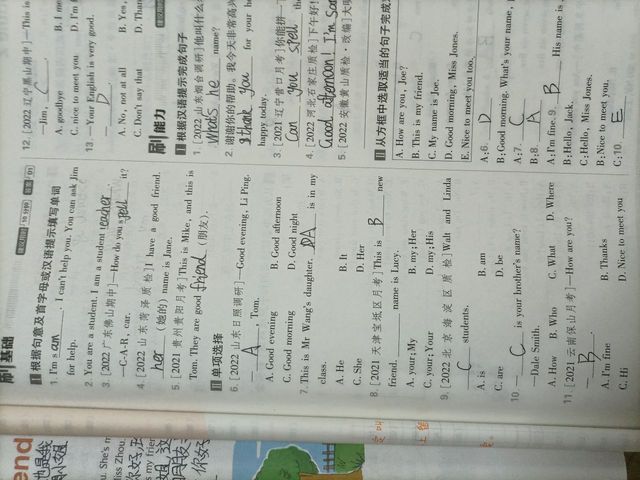 刷基础
Ⅰ 根据句意及首字母或汉语提示填写单词
1. I'm s can . I can't help you. You can ask Jim
for help.
2. You are a student. I am a student teacher.
3. [2022 广东佛山期中]—How do you spell it?
—C-A-R, car.
4. [2022 山东菏泽质检] I have a good friend.
her (她的) name is Jane.
5. [2021 贵州贵阳月考] This is Mike, and this is
Tom. They are good friend (朋友).
Ⅱ 单项选择
6. [2022 山东日照调研]—Good evening, Li Ping.
— A , Tom.
A. Good evening B. Good afternoon
C. Good morning D. Good night
7. This is Mr Wang's daughter. DA is in my
class.
A. He B. It
C. She D. Her
8. [2021 天津宝坻区月考] This is B new
friend. name is Lucy.
A. your; My B. my; Her
C. your; Your D. my; His
9. [2022 北京海淀区质检] Walt and Linda
C students.
A. is B. am
C. are D. be
10. — C is your brother's name?
—Dale Smith.
A. How B. Who C. What D. Where
11. [2021 云南保山月考]—How are you?
— B .
A. I'm fine B. Thanks
C. Hi D. Nice to meet you
12. [2022 辽宁黑山期中]—This is
—Jim, C .
A. goodbye B. I
C. nice to meet you D. I'm f
13. —Your English is very good.
— D
A. No, not at all B. Yes,
C. Don't say that D. Than
刷能力
Ⅰ 根据汉语提示完成句子
1. [2022 山东烟台调研] 他叫什么
Whats he name?
2. 谢谢你的帮助。我今天非常高兴
I thank you for your he
happy today.
3. [2021 辽宁营口月考] 你能拼一下
Can you spell th
4. [2022 河北石家庄质检] 下午好!
Good afternoon! I'm Sca
5. [2022 安徽黄山质检·改编] 大
Ⅱ 从方框中选取适当的句子完成
A. How are you, Joe?
B. This is my friend.
C. My name is Joe.
D. Good morning, Miss Jones.
E. Nice to meet you too.
A: 6. D
B: Good morning. What's your name,
A: 7. C
B: 8. A
A: I'm fine. 9. B His name is
B: Hello, Jack.
C: Hello, Miss Jones.
B: Nice to meet you,
C: 10. E